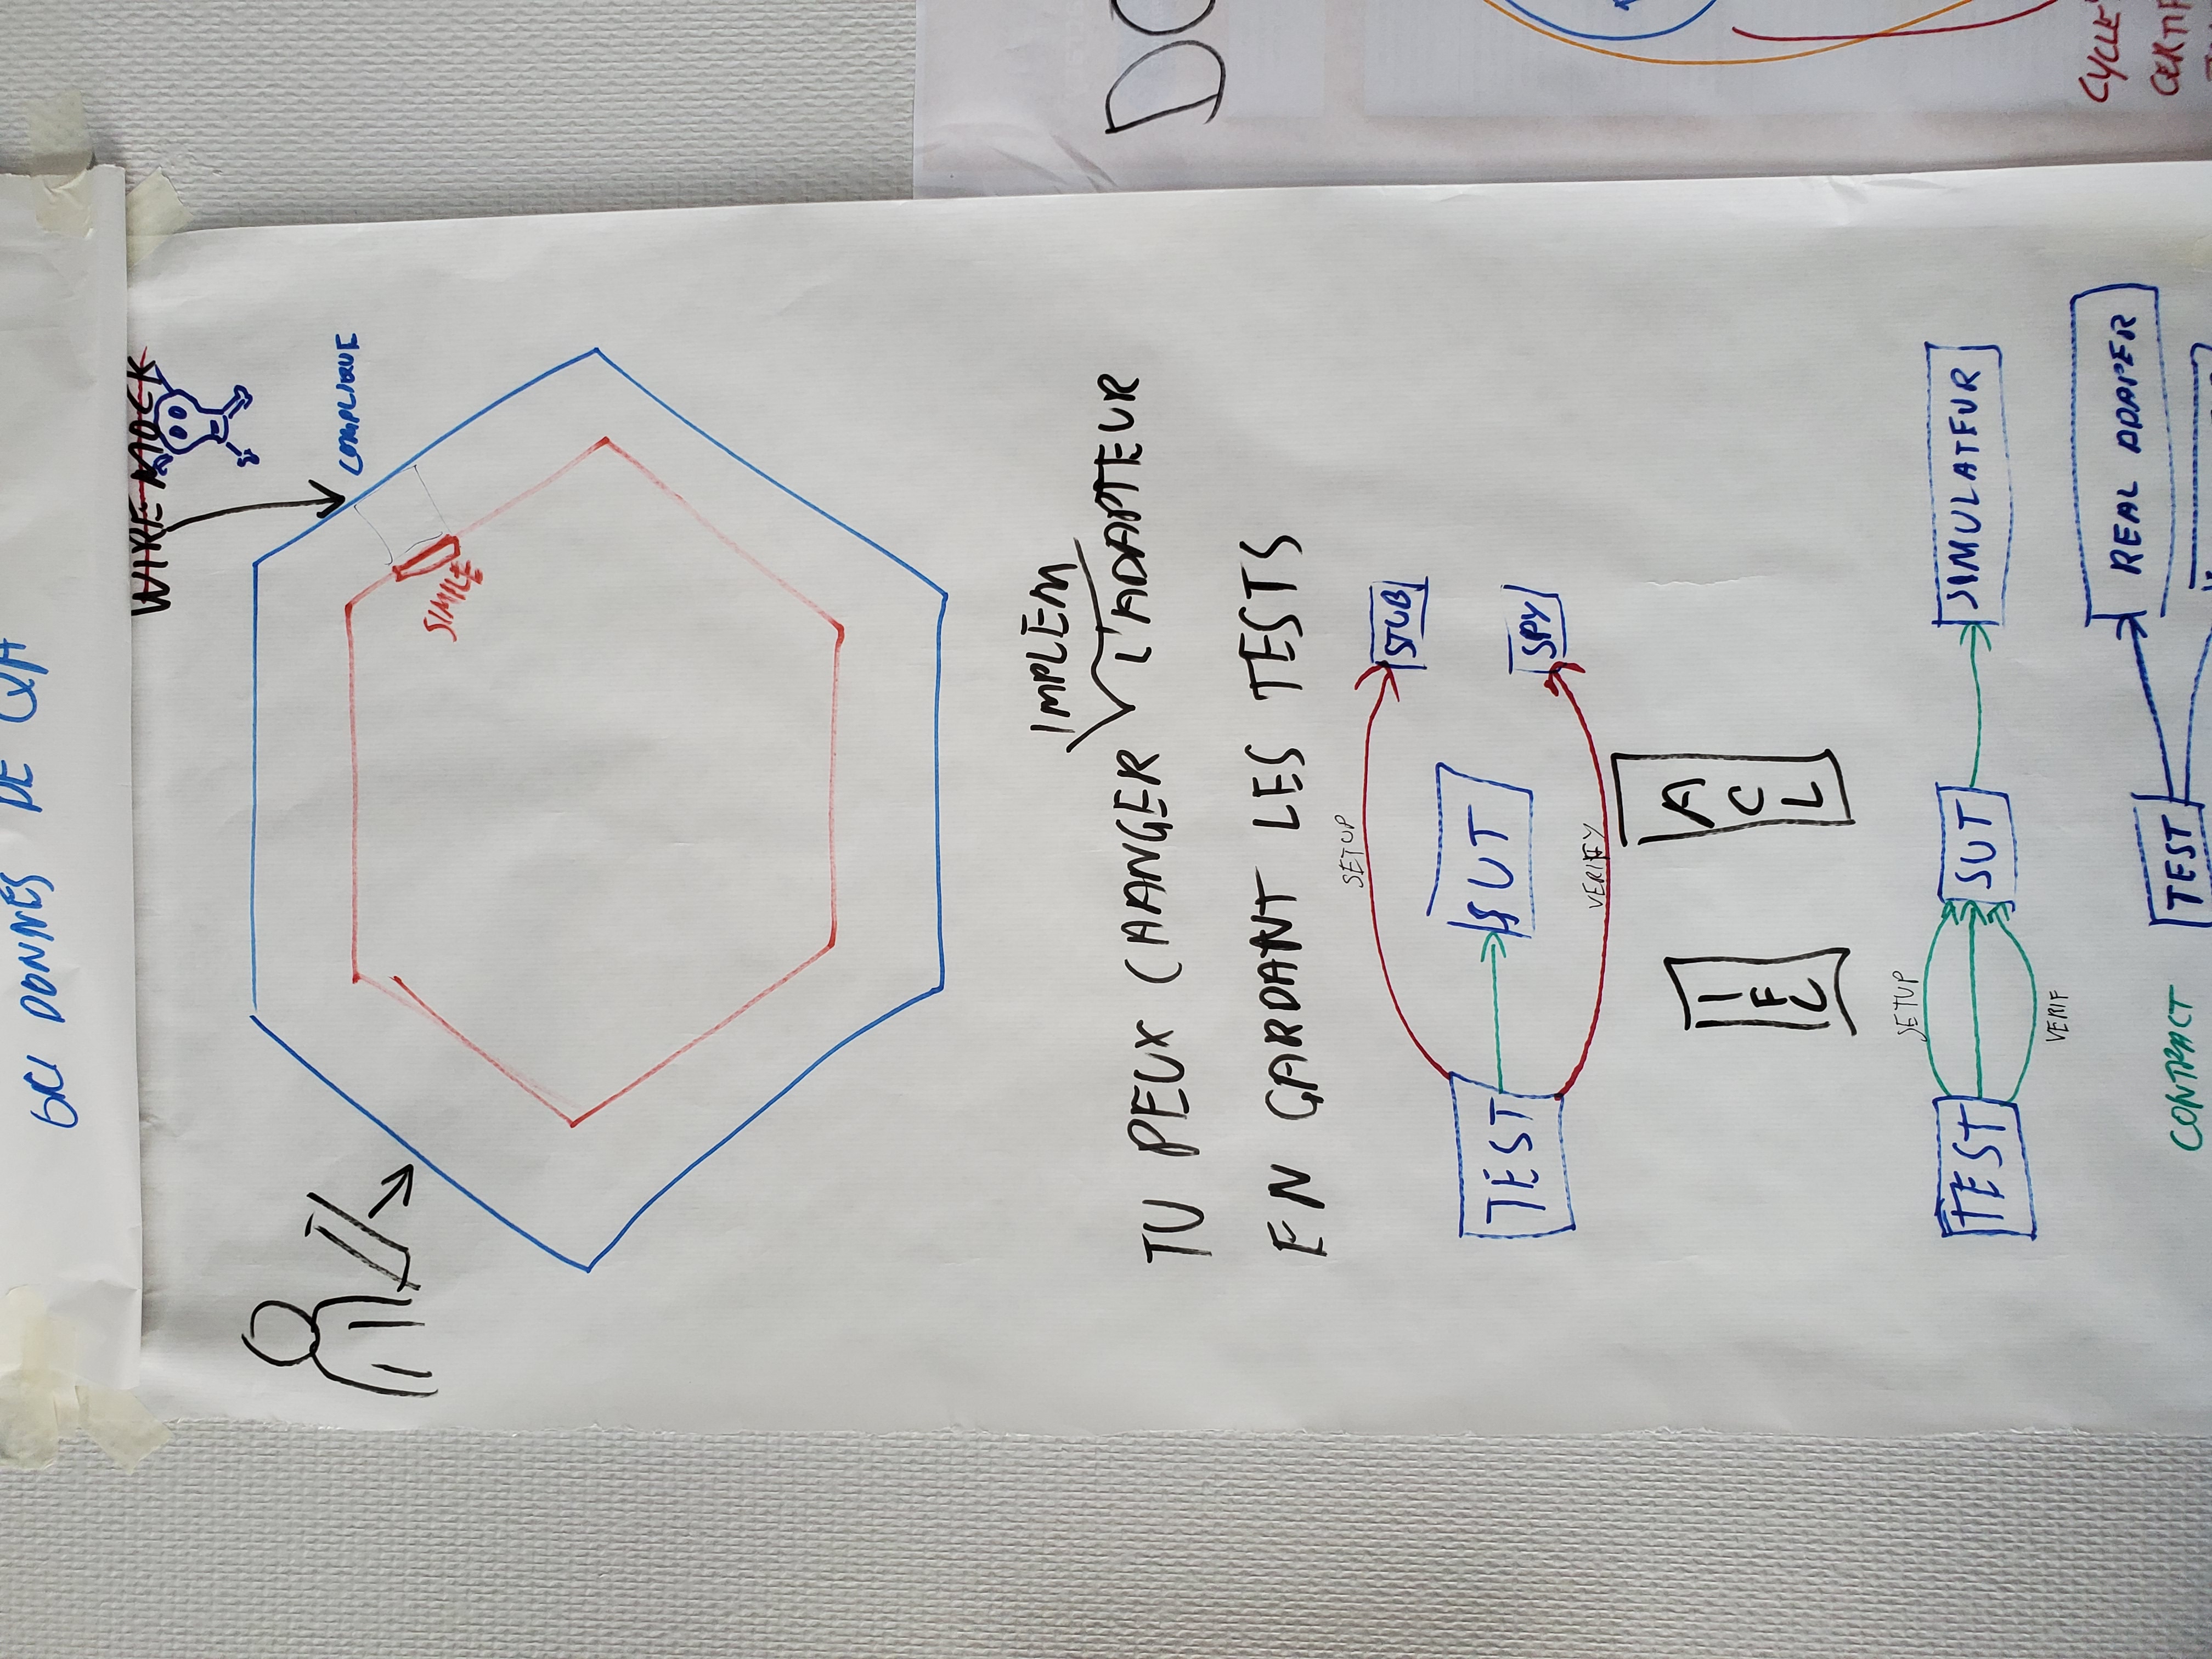 DONNES DE QA
WIRE MOCK
COMPLIQUE
SIMPLE
IMPLEM
TU PEUX CHANGER L'ADAPTEUR
EN GARDANT LES TESTS
SETUP
STUB
TEST
SUT
SPY
VERIFY
IFL
ACL
SETUP
TEST
SUT
SIMULATEUR
VERIF
REAL ADAPER
CONTRACT
TEST
CYCLE